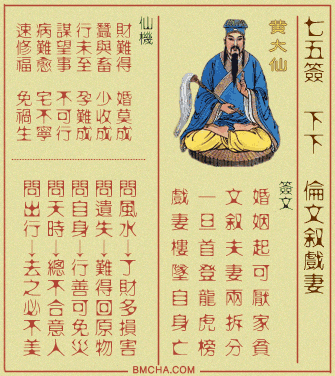 七五簽 下下 倫文叙戲妻
黄大仙
簽文
婚姻起可厭家貧
文叙夫妻兩拆分
一旦首登龍虎榜
戲妻樓墜自身亡
仙機
財難得 婚莫成
蠶與畜 少收成
行未至 孕難成
謀望事 不可行
病難愈 宅不寧
速修福 免禍生
問風水→了財多損害
問遺失→難得回原物
問自身→行善可免災
問天時→總不合意人
問出行→去之必不美
BMCHA.COM